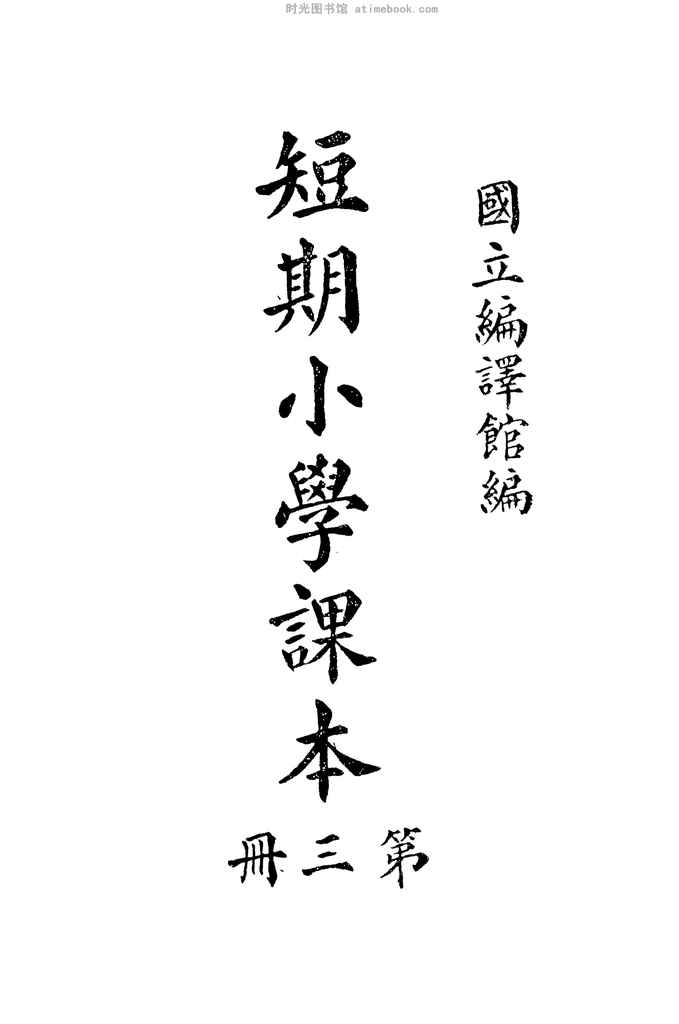 时光图书馆 atimebook.com
國立編譯館編
短期小學課本
第三冊